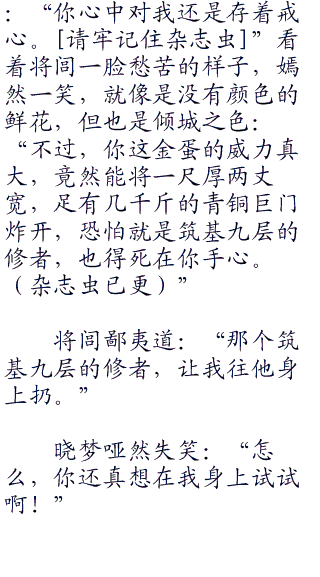 ：“你心中对我还是存着戒
心。[请牢记住杂志虫]”看
着将闾一脸愁苦的样子，嫣
然一笑，就像是没有颜色的
鲜花，但也是倾城之色：
“不过，你这金蛋的威力真
大，竟然能将一尺厚两丈
宽，足有几千斤的青铜巨门
炸开，恐怕就是筑基九层的
修者，也得死在你手心。
（杂志虫已更）”
将闾鄙夷道：“那个筑
基九层的修者，让我往他身
上扔。”
晓梦哑然失笑：“怎
么，你还真想在我身上试试
啊！”